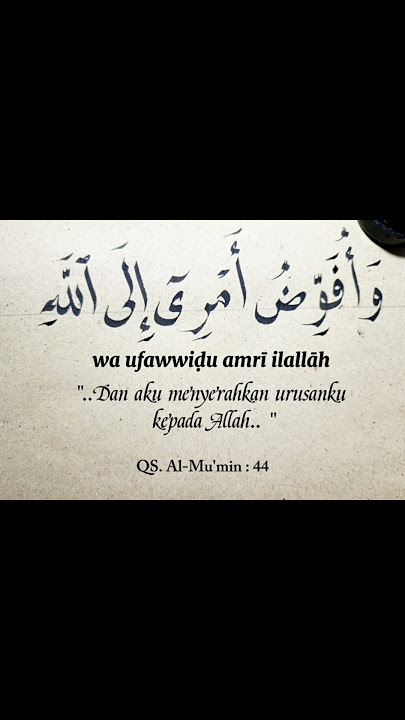 وَأُفَوِّضُ أَمْرِىٓ إِلَى ٱللَّهِ
wa ufawwiḍu amrī ilallāh
"..Dan aku menyerahkan urusanku
kepada Allah.. "
QS. Al-Mu'min : 44